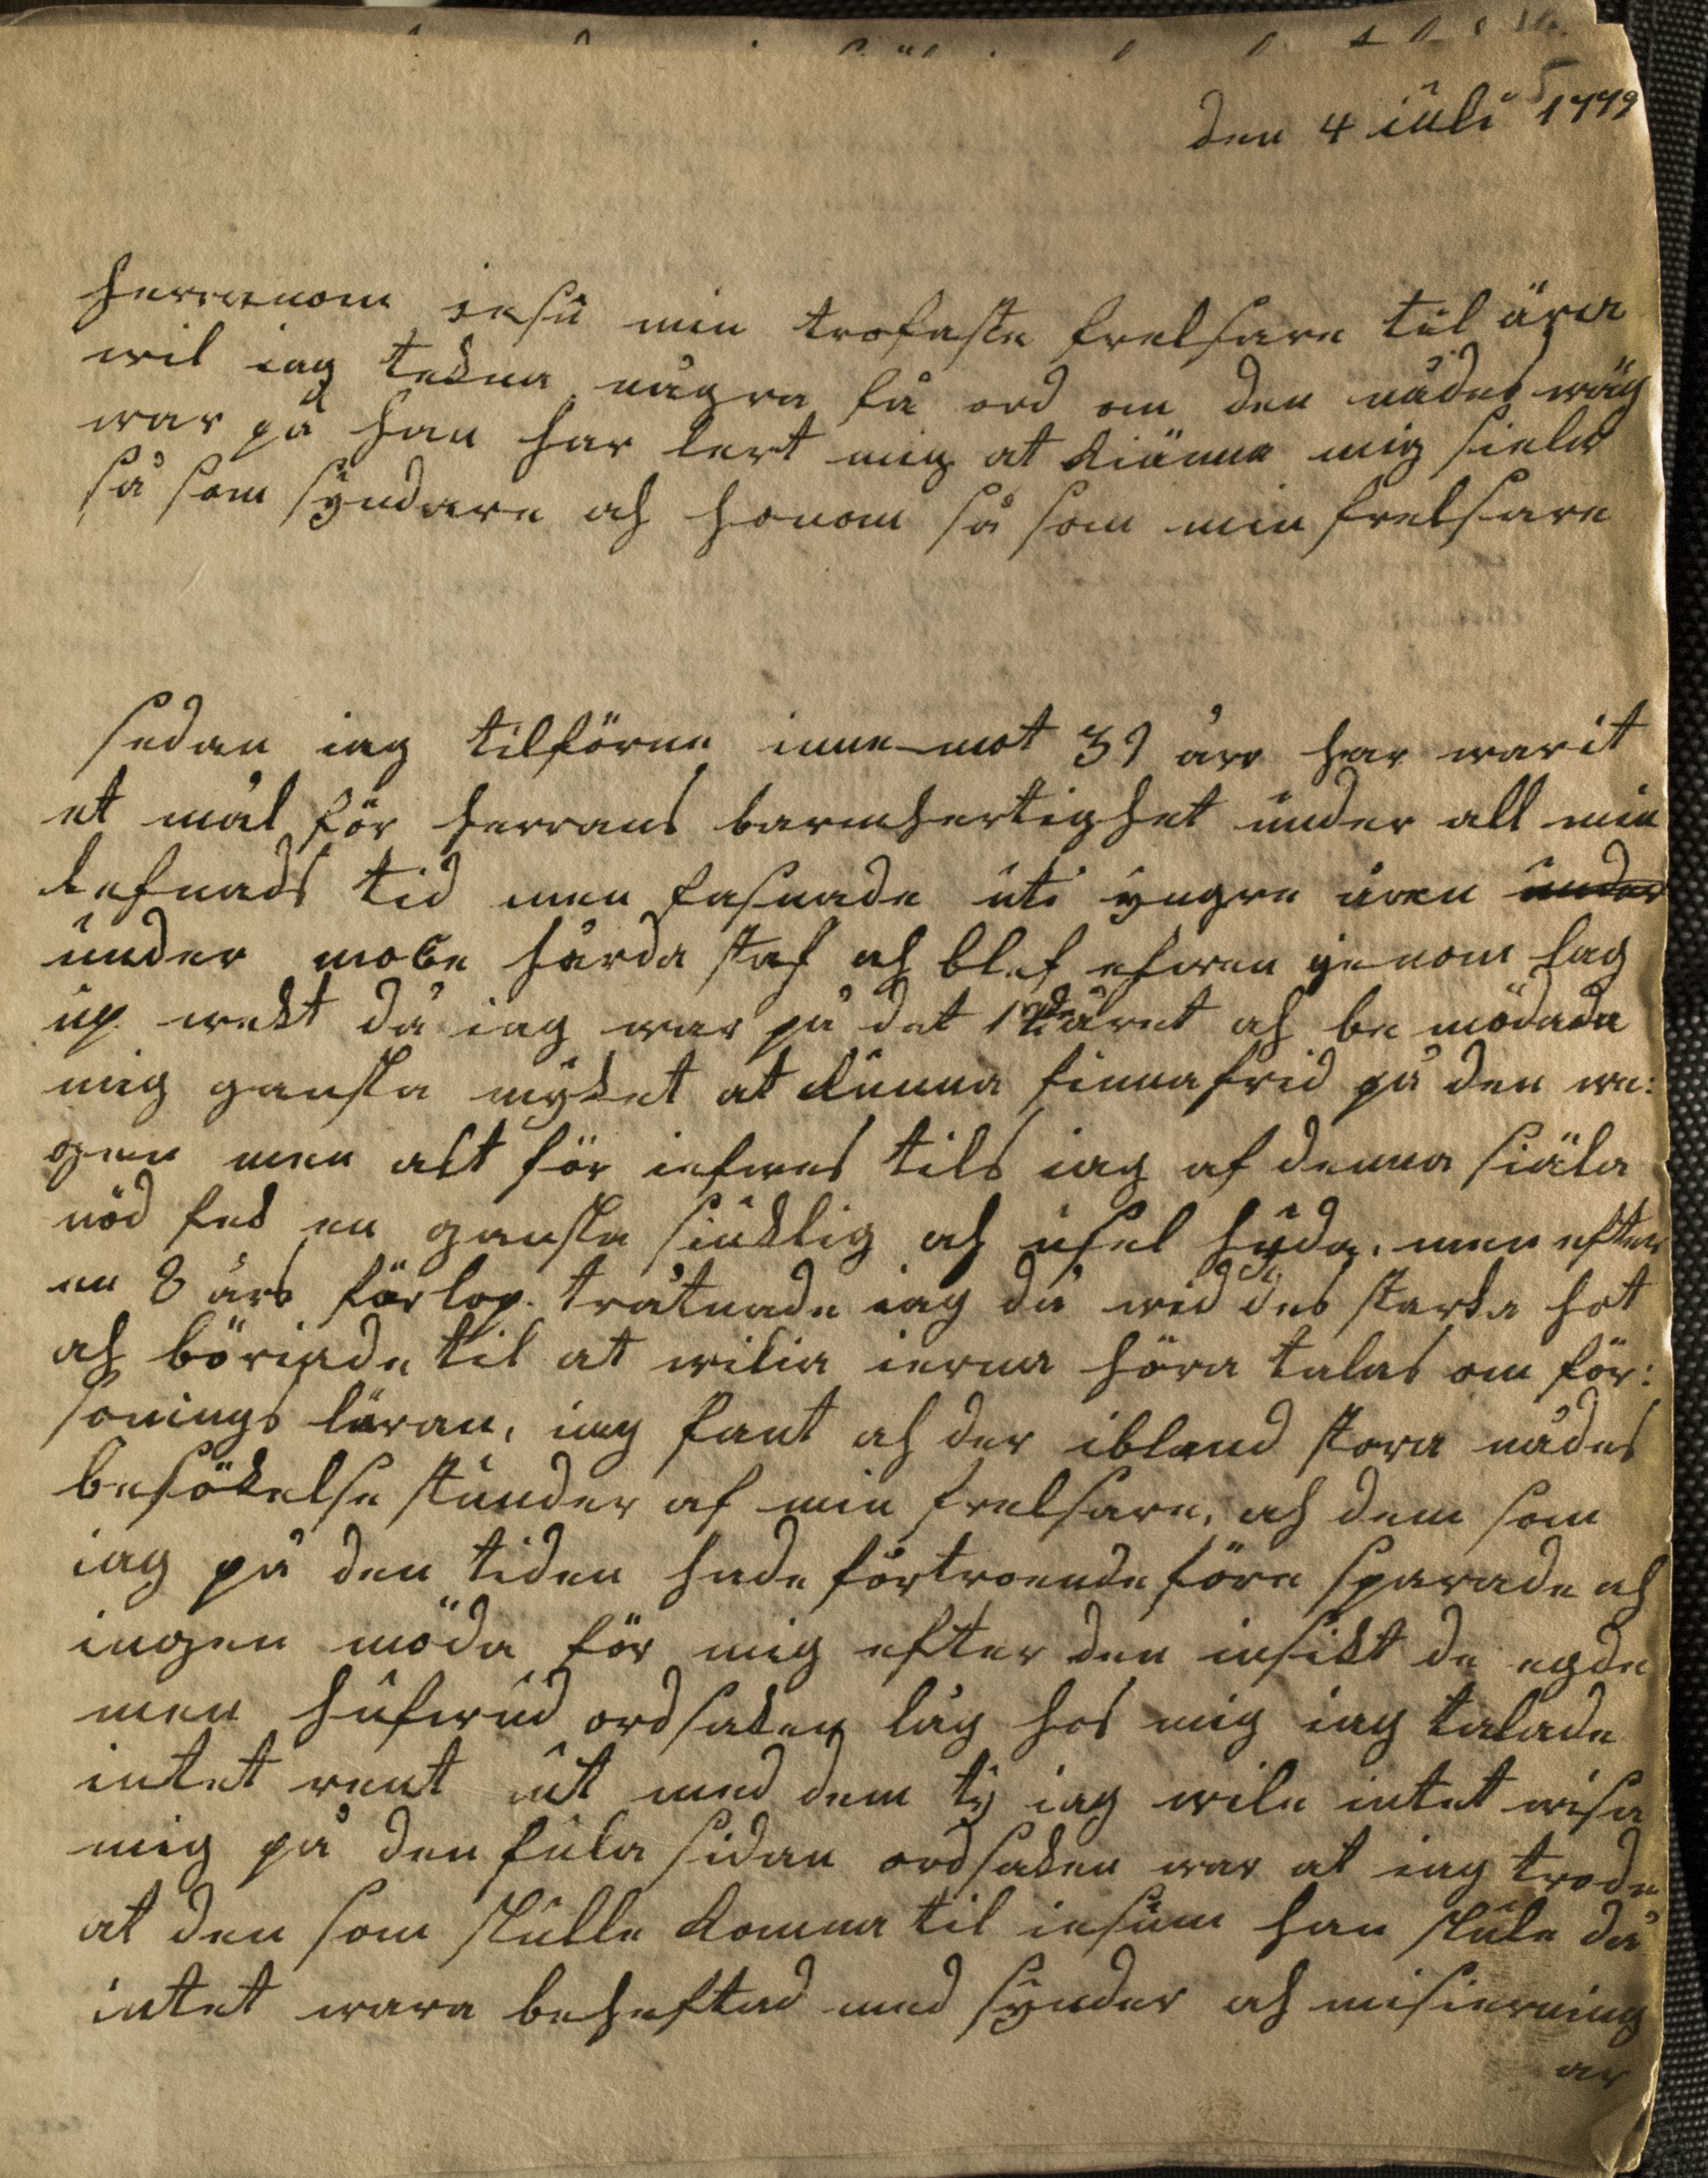 den 4 iuli 1779
herranom iesu min trofaste frelsare til ära
wil iag tekna några få ord om den nådes wäg
war på han har lert mig at kiänna mig sielw
så som syndare ah honom så som min frelsare
sedan iag tilförne inne-mot 39 åre har warit
et mål för herrans barmhertighet under all min
lefnads tid men fasnade uti yngre åren under
under mose hårda staf ah blef efwen genom lag
up wekt då iag war på det 12 året ah be mödade
mig ganska myket at kunna finna frid på den we:
gen men alt för iefwes tils iag af denna siäla
nöd fek en ganska siuklig ah usel hyda. men efter
en 8 års förlop tråtnade iag då wid des starka hot
ah böriade til at wilia ierna höra talas om för:
sonings läran, iag fant ah der ibland stora nådes
besökelse stunder af min frelsare, ah dem som
iag på den tiden hade förtroende före sparade ah
ingen möda för mig efter den insikt de egde
men hufwud ordsaken låg hos mig iag talade
intet rent ut med dem ty iag wile intet wisa
mig på den fula sidan ordsaken war at iag trode
at den som skulle komma til iesum han skule då
intet wara beheftad med synder ah misierning
ar